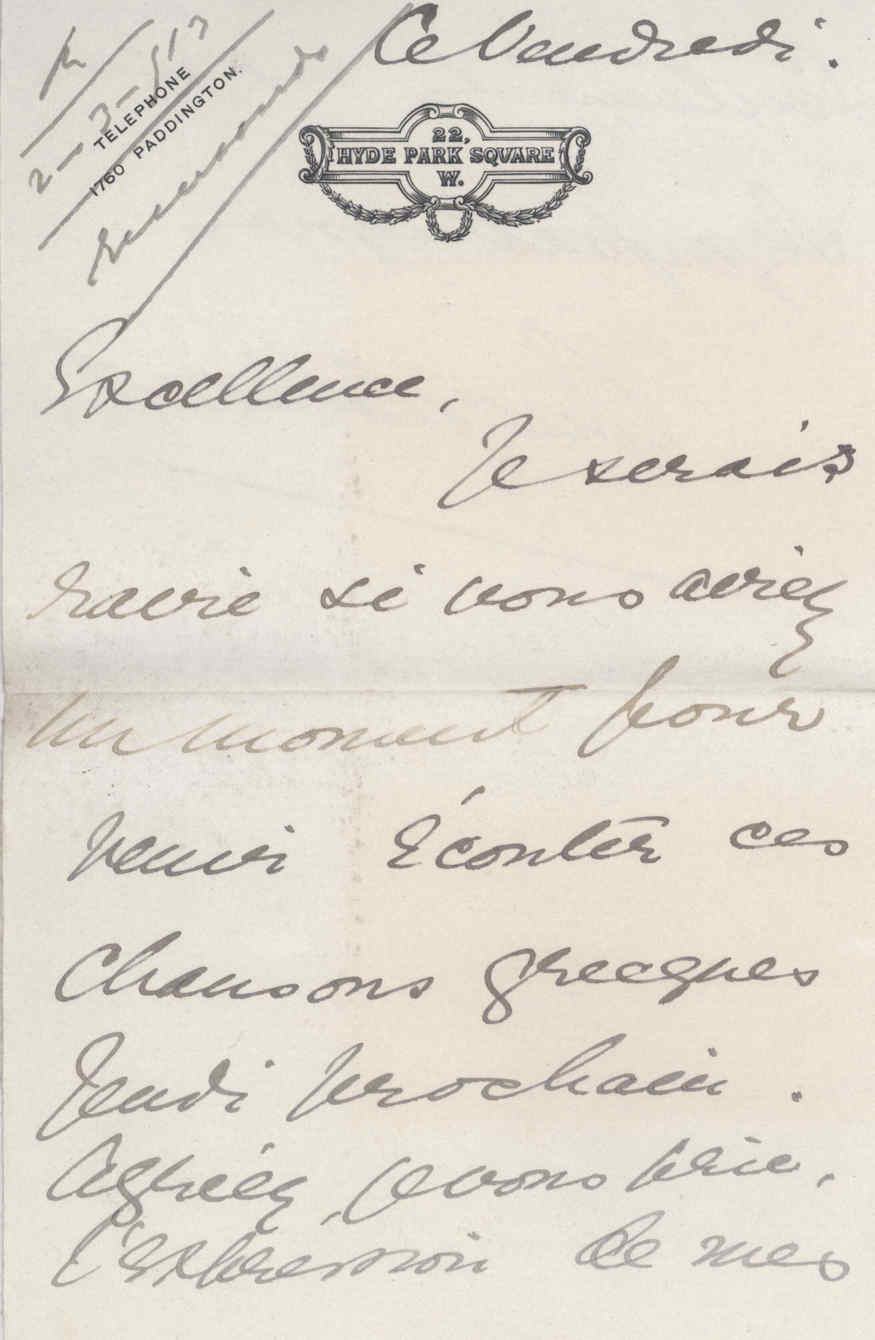 Ce Vendredi.
R
2-3-913
TELEPHONE
1760 PADDINGTON.
22,
HYDE PARK SQUARE
W.
Excellence,
Je serais
ravie si vous aviez
un moment pour
venir écouter ces
chansons grecques
Jeudi prochain.
Agréez, je vous prie,
l'expression de mes